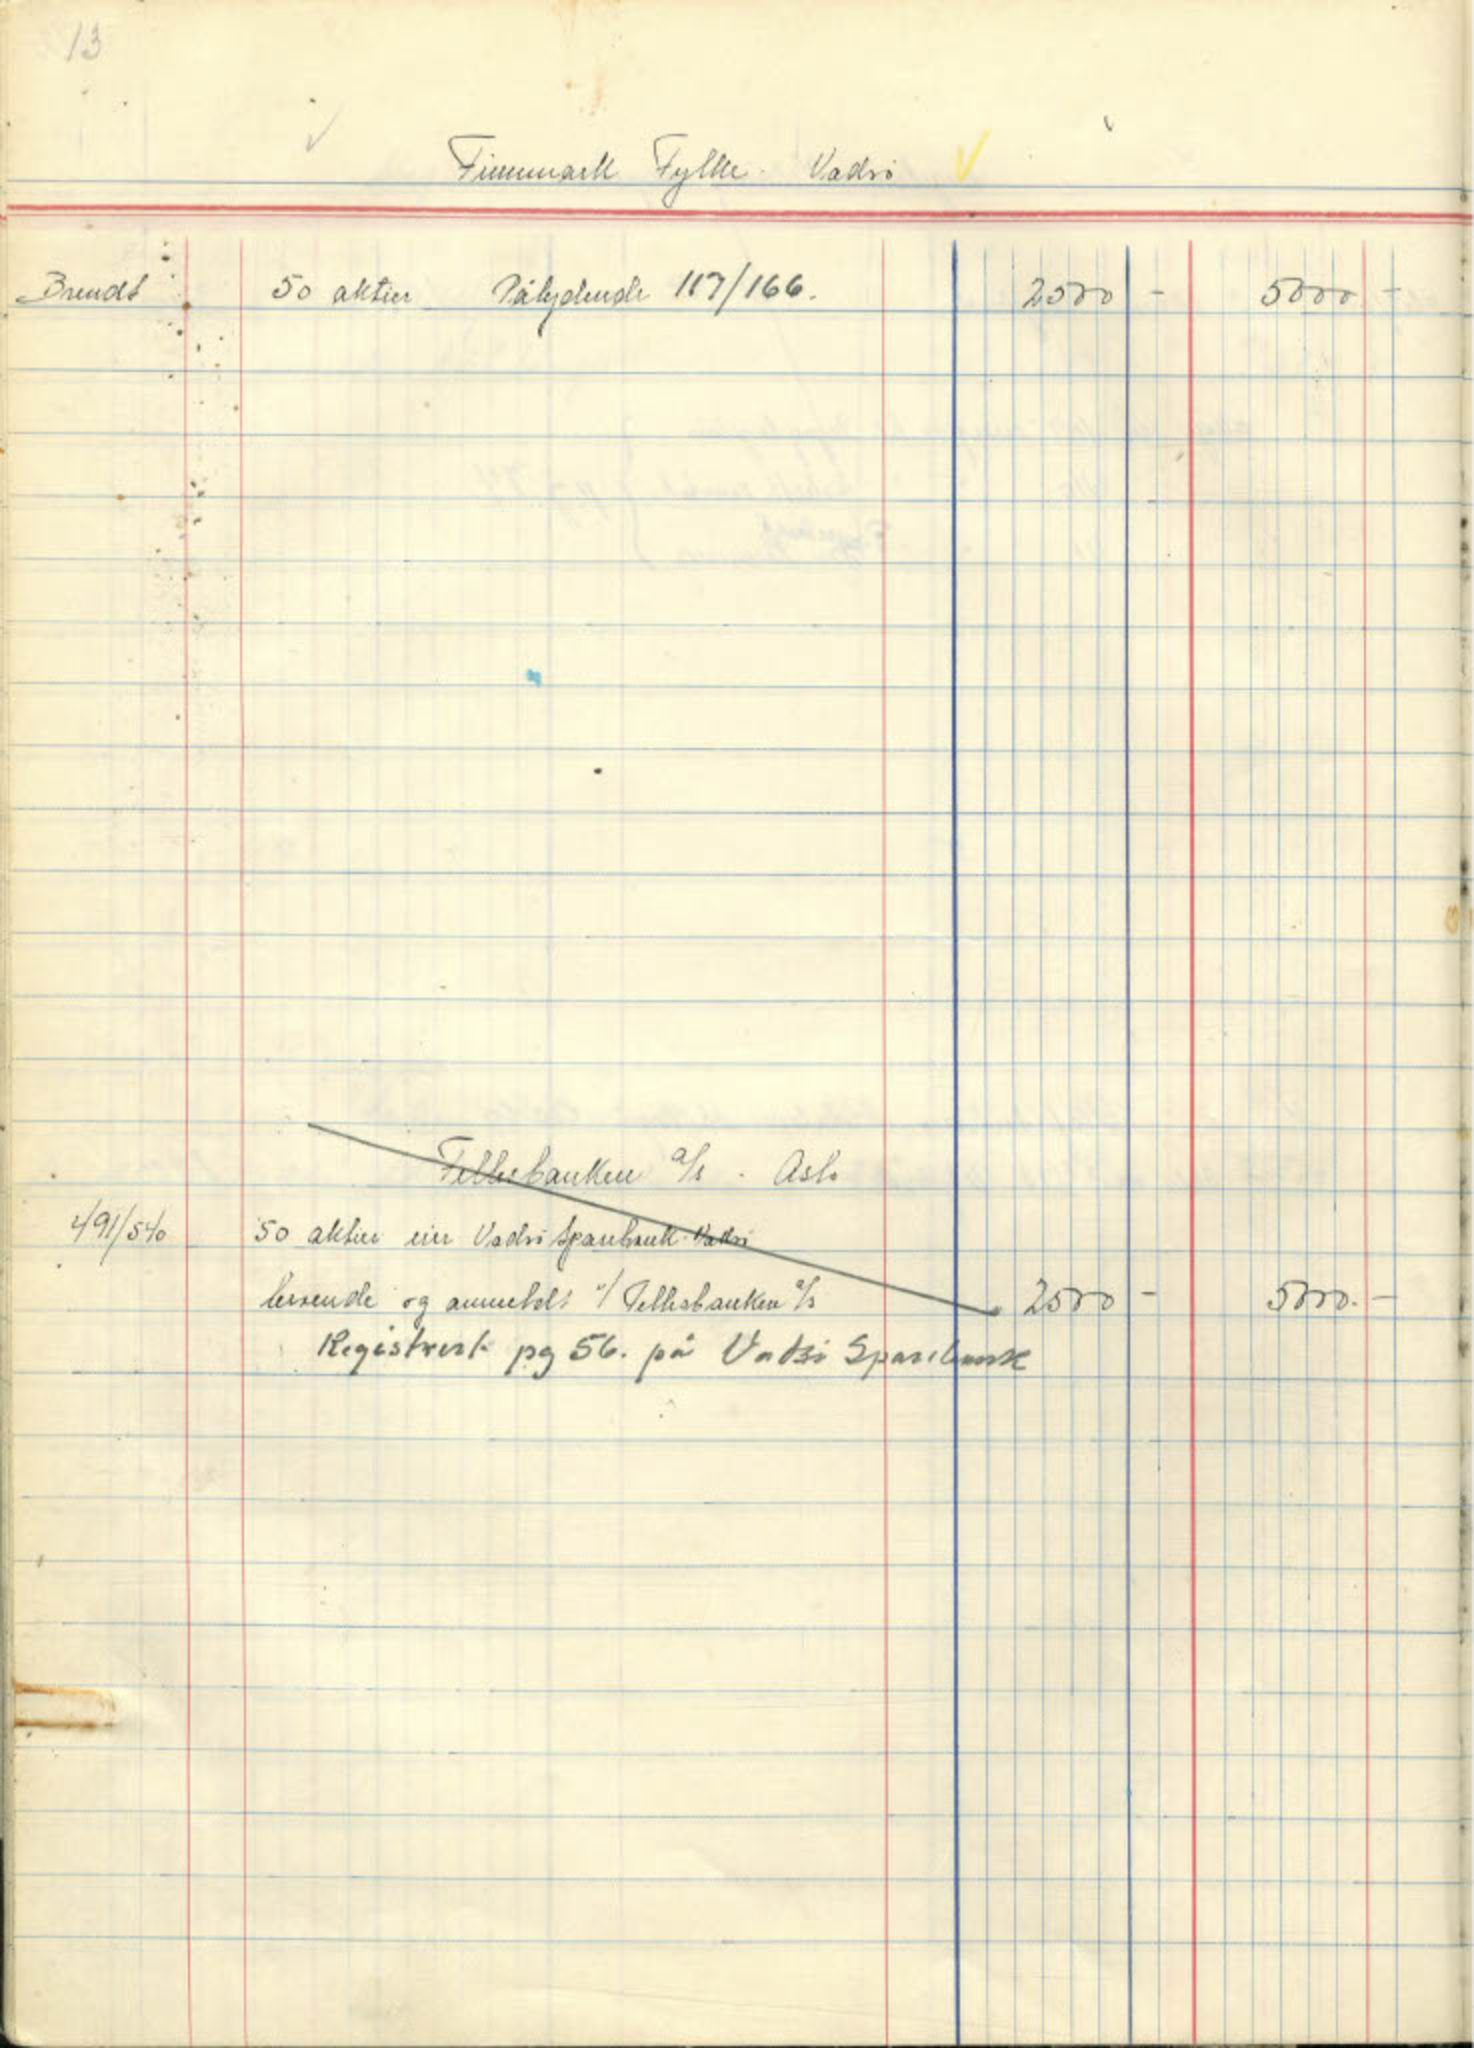 13
Finnmark Fylke. Vadsö
Brendt 50 aktier Pålydende 117/166. 2500 - 5000 -
Fellesbanken a/s. Oslo
491/540 50 aktier eier Vadsö Sparebank Vadsö
lerende og anmeldt v/ Fellesbanken a/s 2500 - 5000. -
Registrert pg 56. på Vadsö Sparebank